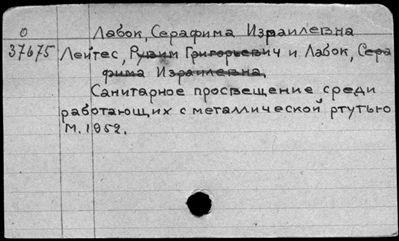 О Лабок, Серафима Израилевна
37675 Лейтес, Рувим Григорьевич и Лабок, Сера
фима Израилевна.
Санитарное просвещение среди
работающих с металлической ртутью
М. 1952.